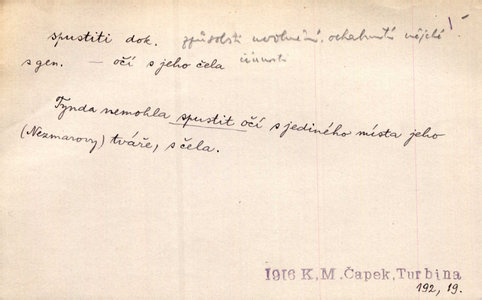 spustiti dok. způsobiti uvolnění, ochabnutí nějaké
s gen. — očí s jeho čela činnosti
Tynda nemohla spustit očí s jediného místa jeho
(Nezmarovy) tváře, s čela.
1916 K. M. Čapek, Turbina
192, 19.